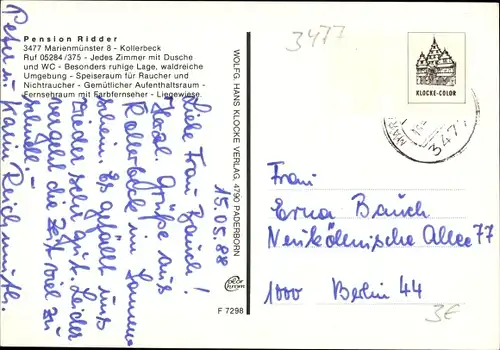 Pension Ridder
3477 Marienmünster 8 - Kollerbeck
Ruf 05284/375 - Jedes Zimmer mit Dusche
und WC - Besonders ruhige Lage, waldreiche
Umgebung - Speiseraum für Raucher und
Nichtraucher - Gemütlicher Aufenthaltsraum -
Fernsehraum mit Farbfernseher - Liegewiese.
15.05.88
Liebe Frau Bauch!
Herzl. Grüße aus
Kollerbeck im Sonnen-
schein. Es gefällt uns
wieder sehr gut. Leider
vergeht die Zeit viel zu
schnell.
Peter u.
Karin Reichmuth.
WOLFG. HANS KLOCKE VERLAG, 4790 PADERBORN
F 7298
3477
KLOCKE-COLOR
3477
Frau
Erna Bauch
Neuköllnische Allee 77
1000 Berlin 44
3€